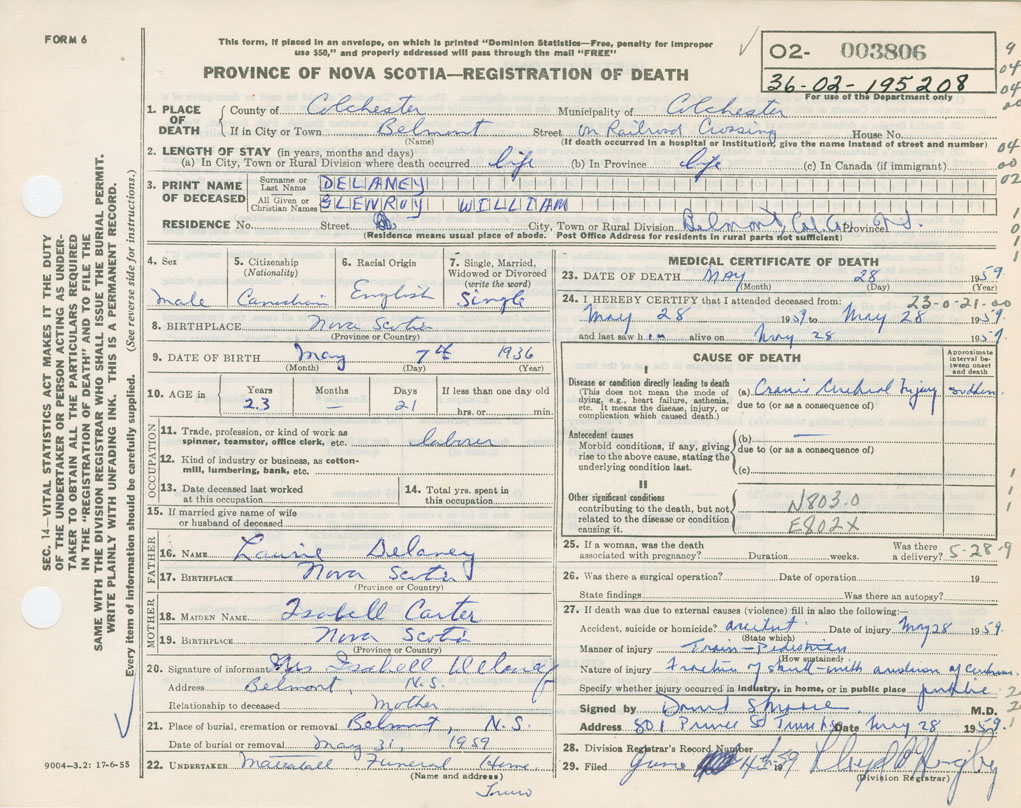 FORM 6
This form, if placed in an envelope, on which is printed "Dominion Statistics—Free, penalty for improper
use $50," and properly addressed will pass through the mail "FREE"
02- 003806
36-02-195208
For use of the Department only
PROVINCE OF NOVA SCOTIA—REGISTRATION OF DEATH
1. PLACE OF DEATH
County of Colchester Municipality of Colchester
If in City or Town Belmont Street On Railroad Crossing House No.
(Name) (If death occurred in a hospital or institution, give the name instead of street and number)
2. LENGTH OF STAY (in years, months and days)
(a) In City, Town or Rural Division where death occurred life (b) In Province life (c) In Canada (if immigrant)
3. PRINT NAME OF DECEASED
Surname or Last Name DELANEY
All Given or Christian Names GLENROY WILLIAM
RESIDENCE No. Street City, Town or Rural Division Belmont, Col. Co. Province N.S.
(Residence means usual place of abode. Post Office Address for residents in rural parts not sufficient)
4. Sex male
5. Citizenship (Nationality) Canadian
6. Racial Origin English
7. Single, Married, Widowed or Divorced (write the word) Single
8. BIRTHPLACE Nova Scotia
(Province or Country)
9. DATE OF BIRTH May 7th 1936
(Month) (Day) (Year)
10. AGE in Years 23 Months — Days 21 If less than one day old hrs. or min.
OCCUPATION
11. Trade, profession, or kind of work as spinner, teamster, office clerk, etc. laborer
12. Kind of industry or business, as cotton-mill, lumbering, bank, etc.
13. Date deceased last worked at this occupation
14. Total yrs. spent in this occupation
15. If married give name of wife or husband of deceased
FATHER
16. NAME Laurie Delaney
17. BIRTHPLACE Nova Scotia
(Province or Country)
MOTHER
18. MAIDEN NAME Isabell Carter
19. BIRTHPLACE Nova Scotia
(Province or Country)
20. Signature of informant Mrs Isabell Delaney
Address Belmont, N.S.
Relationship to deceased Mother
21. Place of burial, cremation or removal Belmont, N.S.
Date of burial or removal May 31, 1959
22. UNDERTAKER Funeral Home
(Name and address)
Truro
9004-3.2: 17-6-55
MEDICAL CERTIFICATE OF DEATH
23. DATE OF DEATH May 28 1959
(Month) (Day) (Year)
24. I HEREBY CERTIFY that I attended deceased from: 23-0-21-00
May 28 1959 to May 28 1959
and last saw him alive on May 28 1959
CAUSE OF DEATH
Approximate interval between onset and death
I
Disease or condition directly leading to death
(This does not mean the mode of dying, e.g., heart failure, asthenia, etc. It means the disease, injury, or complication which caused death.)
(a) Injury sudden
due to (or as a consequence of)
Antecedent causes
Morbid conditions, if any, giving rise to the above cause, stating the underlying condition last.
(b) —
due to (or as a consequence of)
(c)
II
Other significant conditions contributing to the death, but not related to the disease or condition causing it.
N803.0
E802X
25. If a woman, was the death associated with pregnancy? Duration weeks. Was there a delivery? 5-28-9
26. Was there a surgical operation? Date of operation 19
State findings Was there an autopsy?
27. If death was due to external causes (violence) fill in also the following:—
Accident, suicide or homicide? accident Date of injury May 28 1959
(State which)
Manner of injury Train-Pedestrian
(How sustained)
Nature of injury Fracture of skull with of
Specify whether injury occurred in industry, in home, or in public place public
Signed by M.D.
Address 801 Prince St Truro N.S. Date May 28 1959
28. Division Registrar's Record Number
29. Filed June 4th 1959 Lloyd
(Division Registrar)
SEC. 14—VITAL STATISTICS ACT MAKES IT THE DUTY
OF THE UNDERTAKER OR PERSON ACTING AS UNDER-
TAKER TO OBTAIN ALL THE PARTICULARS REQUIRED
IN THE "REGISTRATION OF DEATH" AND TO FILE THE
SAME WITH THE DIVISION REGISTRAR WHO SHALL ISSUE THE BURIAL PERMIT.
WRITE PLAINLY WITH UNFADING INK. THIS IS A PERMANENT RECORD.
Every item of information should be carefully supplied. (See reverse side for instructions.)